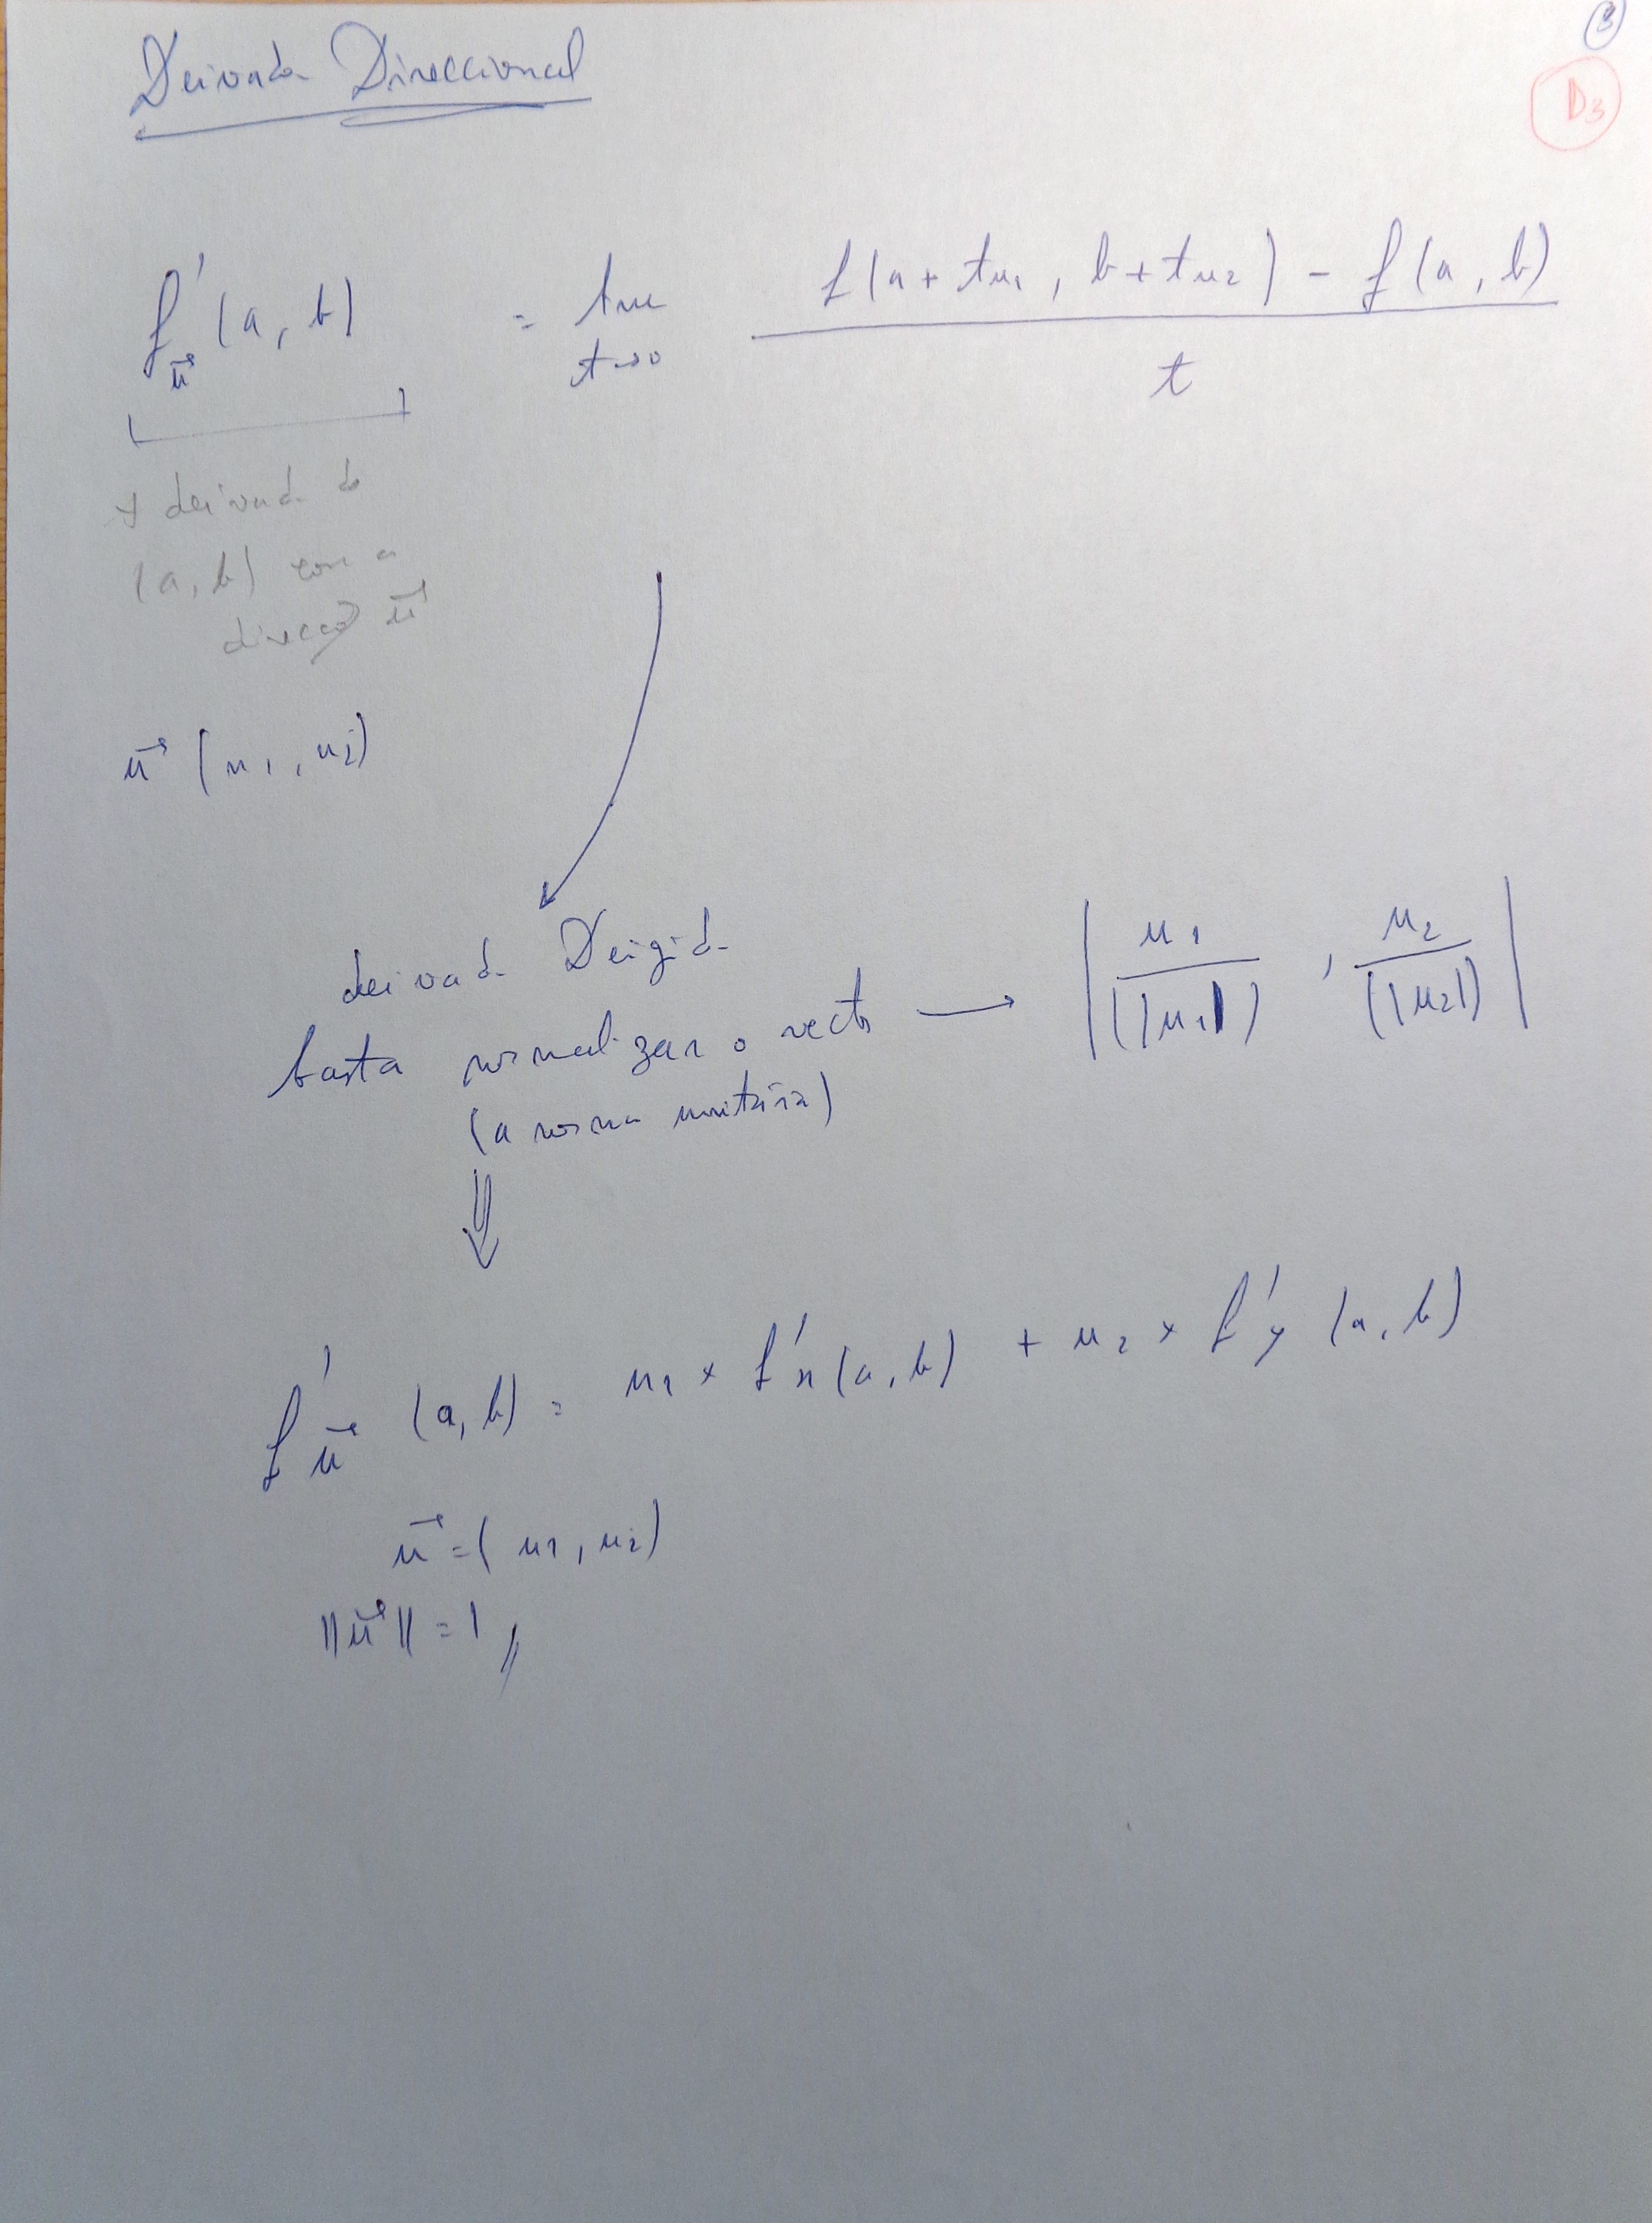 3
D3
Derivada Direccional
f'_u⃗ (a, b) = lim t→0 (f(a + tu1, b + tu2) - f(a, b)) / t
derivada de
(a, b) com a
direcção u⃗
u⃗ (u1, u2)
derivada Dirigida
basta normalizar o vector → | u1/(|u1|) , u2/(|u2|) |
(a norma unitária)
⇓
f'_u⃗ (a, b) = u1 × f'x (a, b) + u2 × f'y (a, b)
u⃗ = (u1, u2)
||u⃗|| = 1 //